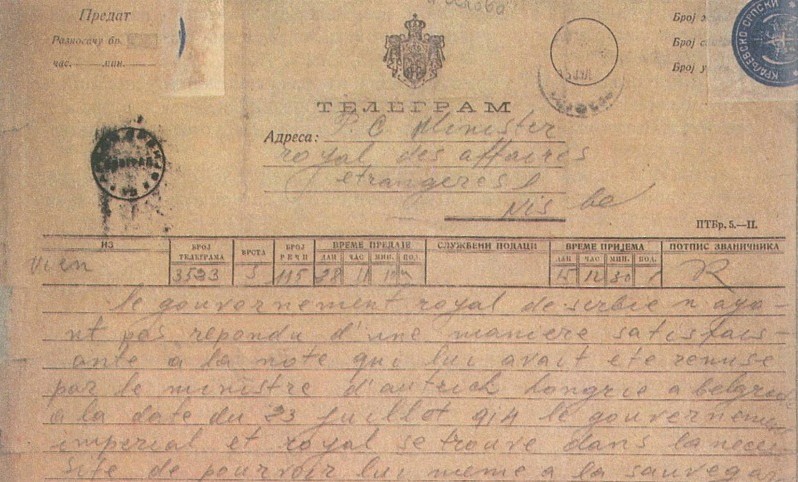 Предат
Разносачу бр.
час. мин.
Број
Број
Број
КРАЉЕВСКО-СРПСКИ
ТЕЛЕГРАМ
Адреса: P. C Minister
royal des affaires
etrangeres
Nis be
ПТБр. 5.—II.
ИЗ
БРОЈ ТЕЛЕГРАМА
ВРСТА
БРОЈ РЕЧИ
ВРЕМЕ ПРЕДАЈЕ
СЛУЖБЕНИ ПОДАЦИ
ВРЕМЕ ПРИЈЕМА
ПОТПИС ЗВАНИЧНИКА
ДАН ЧАС МИН. ПОЛ.
ДАН ЧАС МИН. ПОЛ.
Vien 3523 115 28 11 12 30
le gouvernement royal de serbie n aya-
nt pas repondu d'une maniere satisfais-
ante a la note qui lui avait ete remise
par le ministre d'autrich hongrie a belgrade
a la date du 23 juillot 914 le gouvernement
imperial et royal se trouve dans la neces
site de pourvoir lui meme a la sauvegar